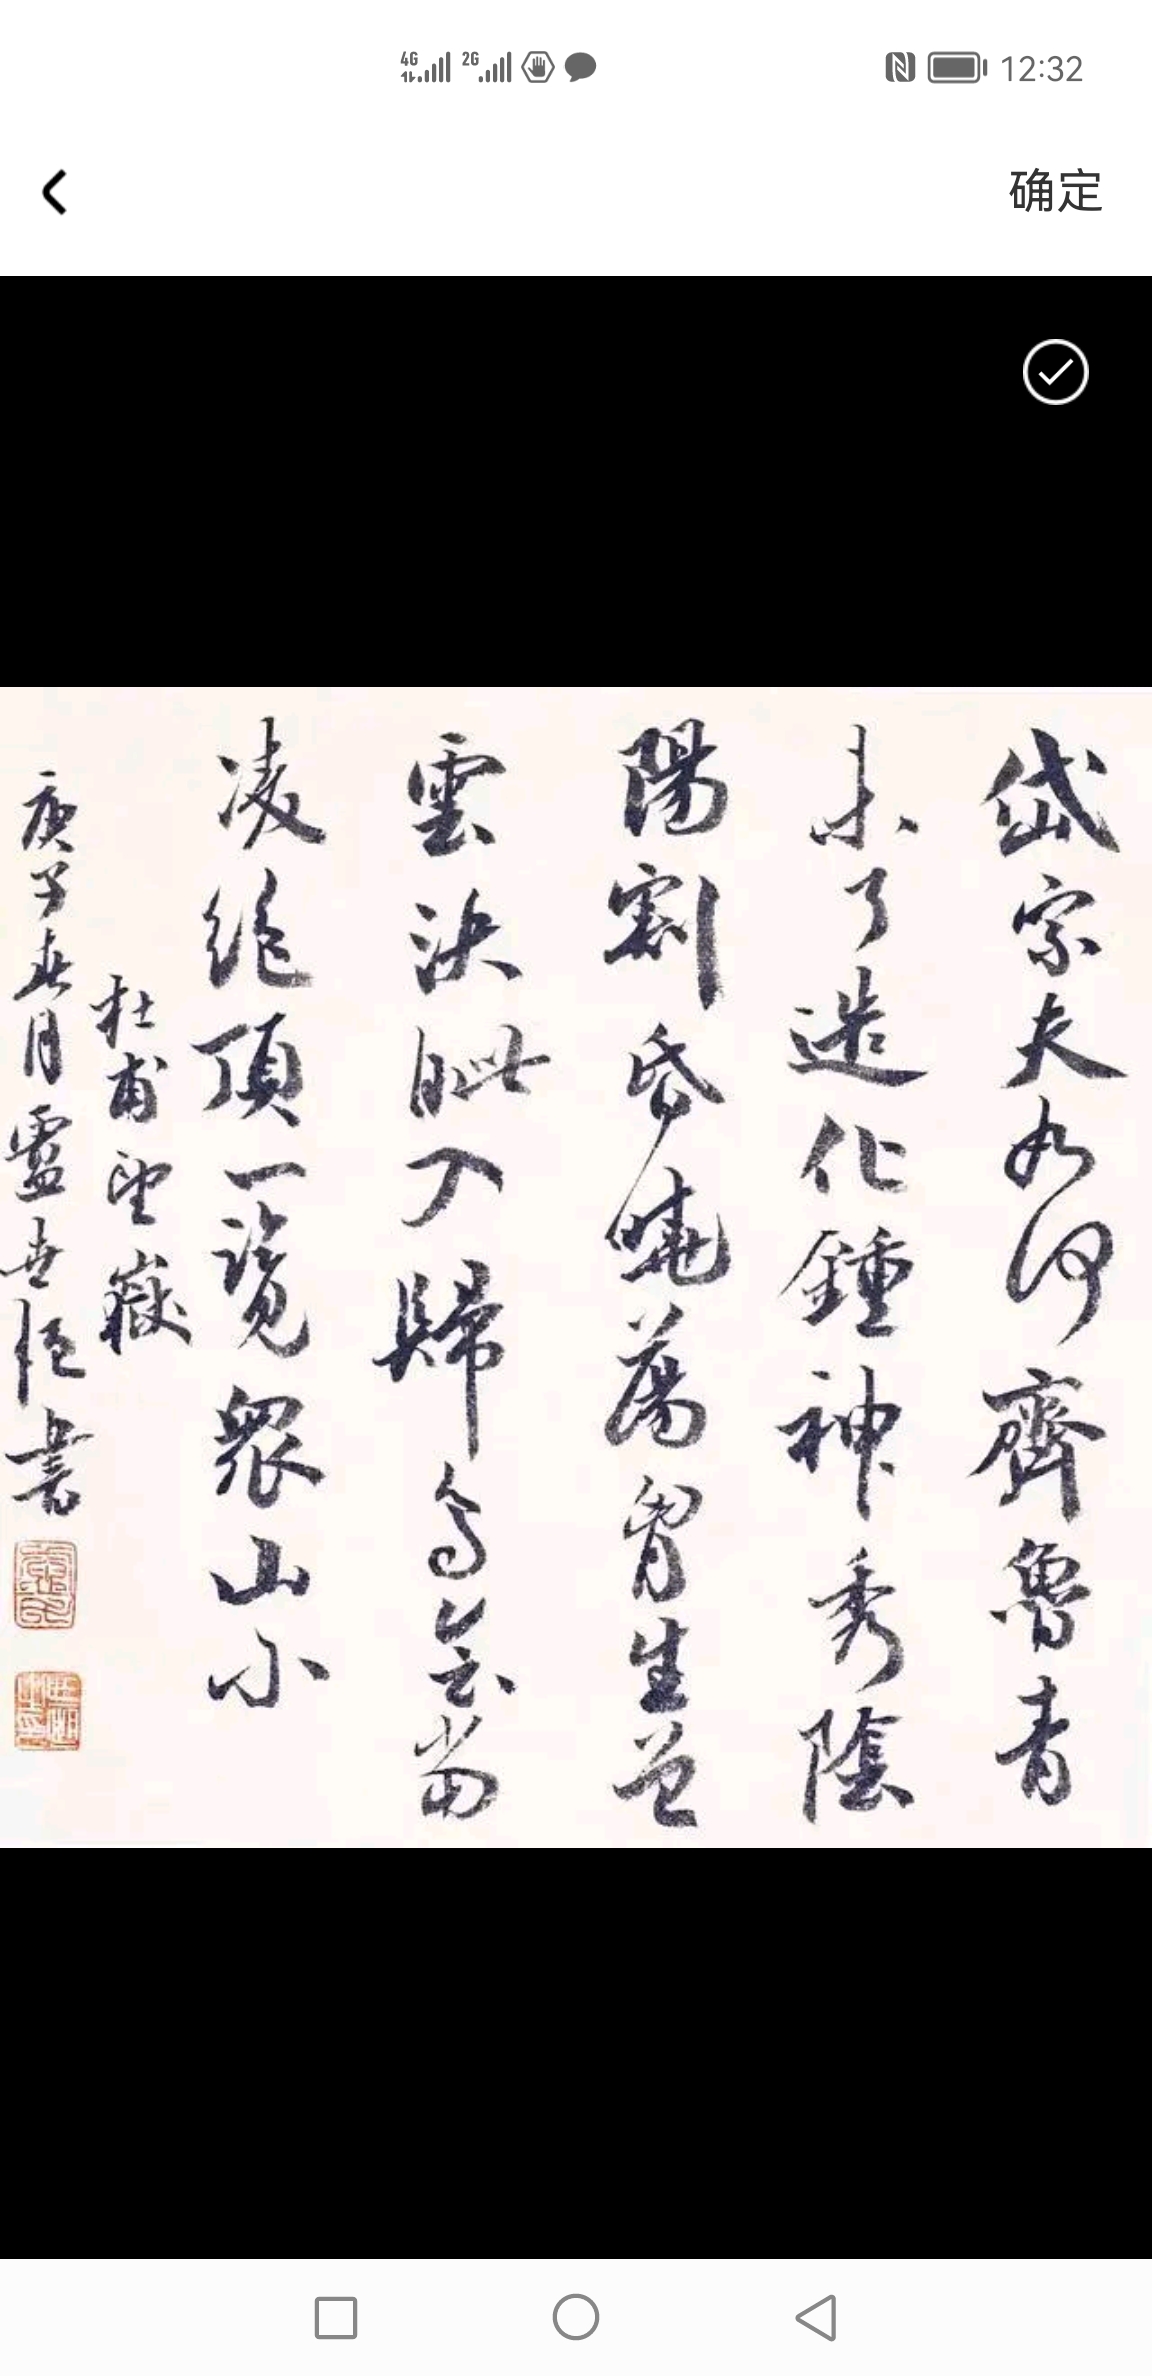 4G 2G 12:32
确定
岱宗夫如何齊魯青
未了造化鍾神秀陰
陽割昏曉蕩胷生曾
雲決眦入歸鳥會當
凌绝頂一覽衆山小
杜甫望嶽
庚子春月靈世恒書